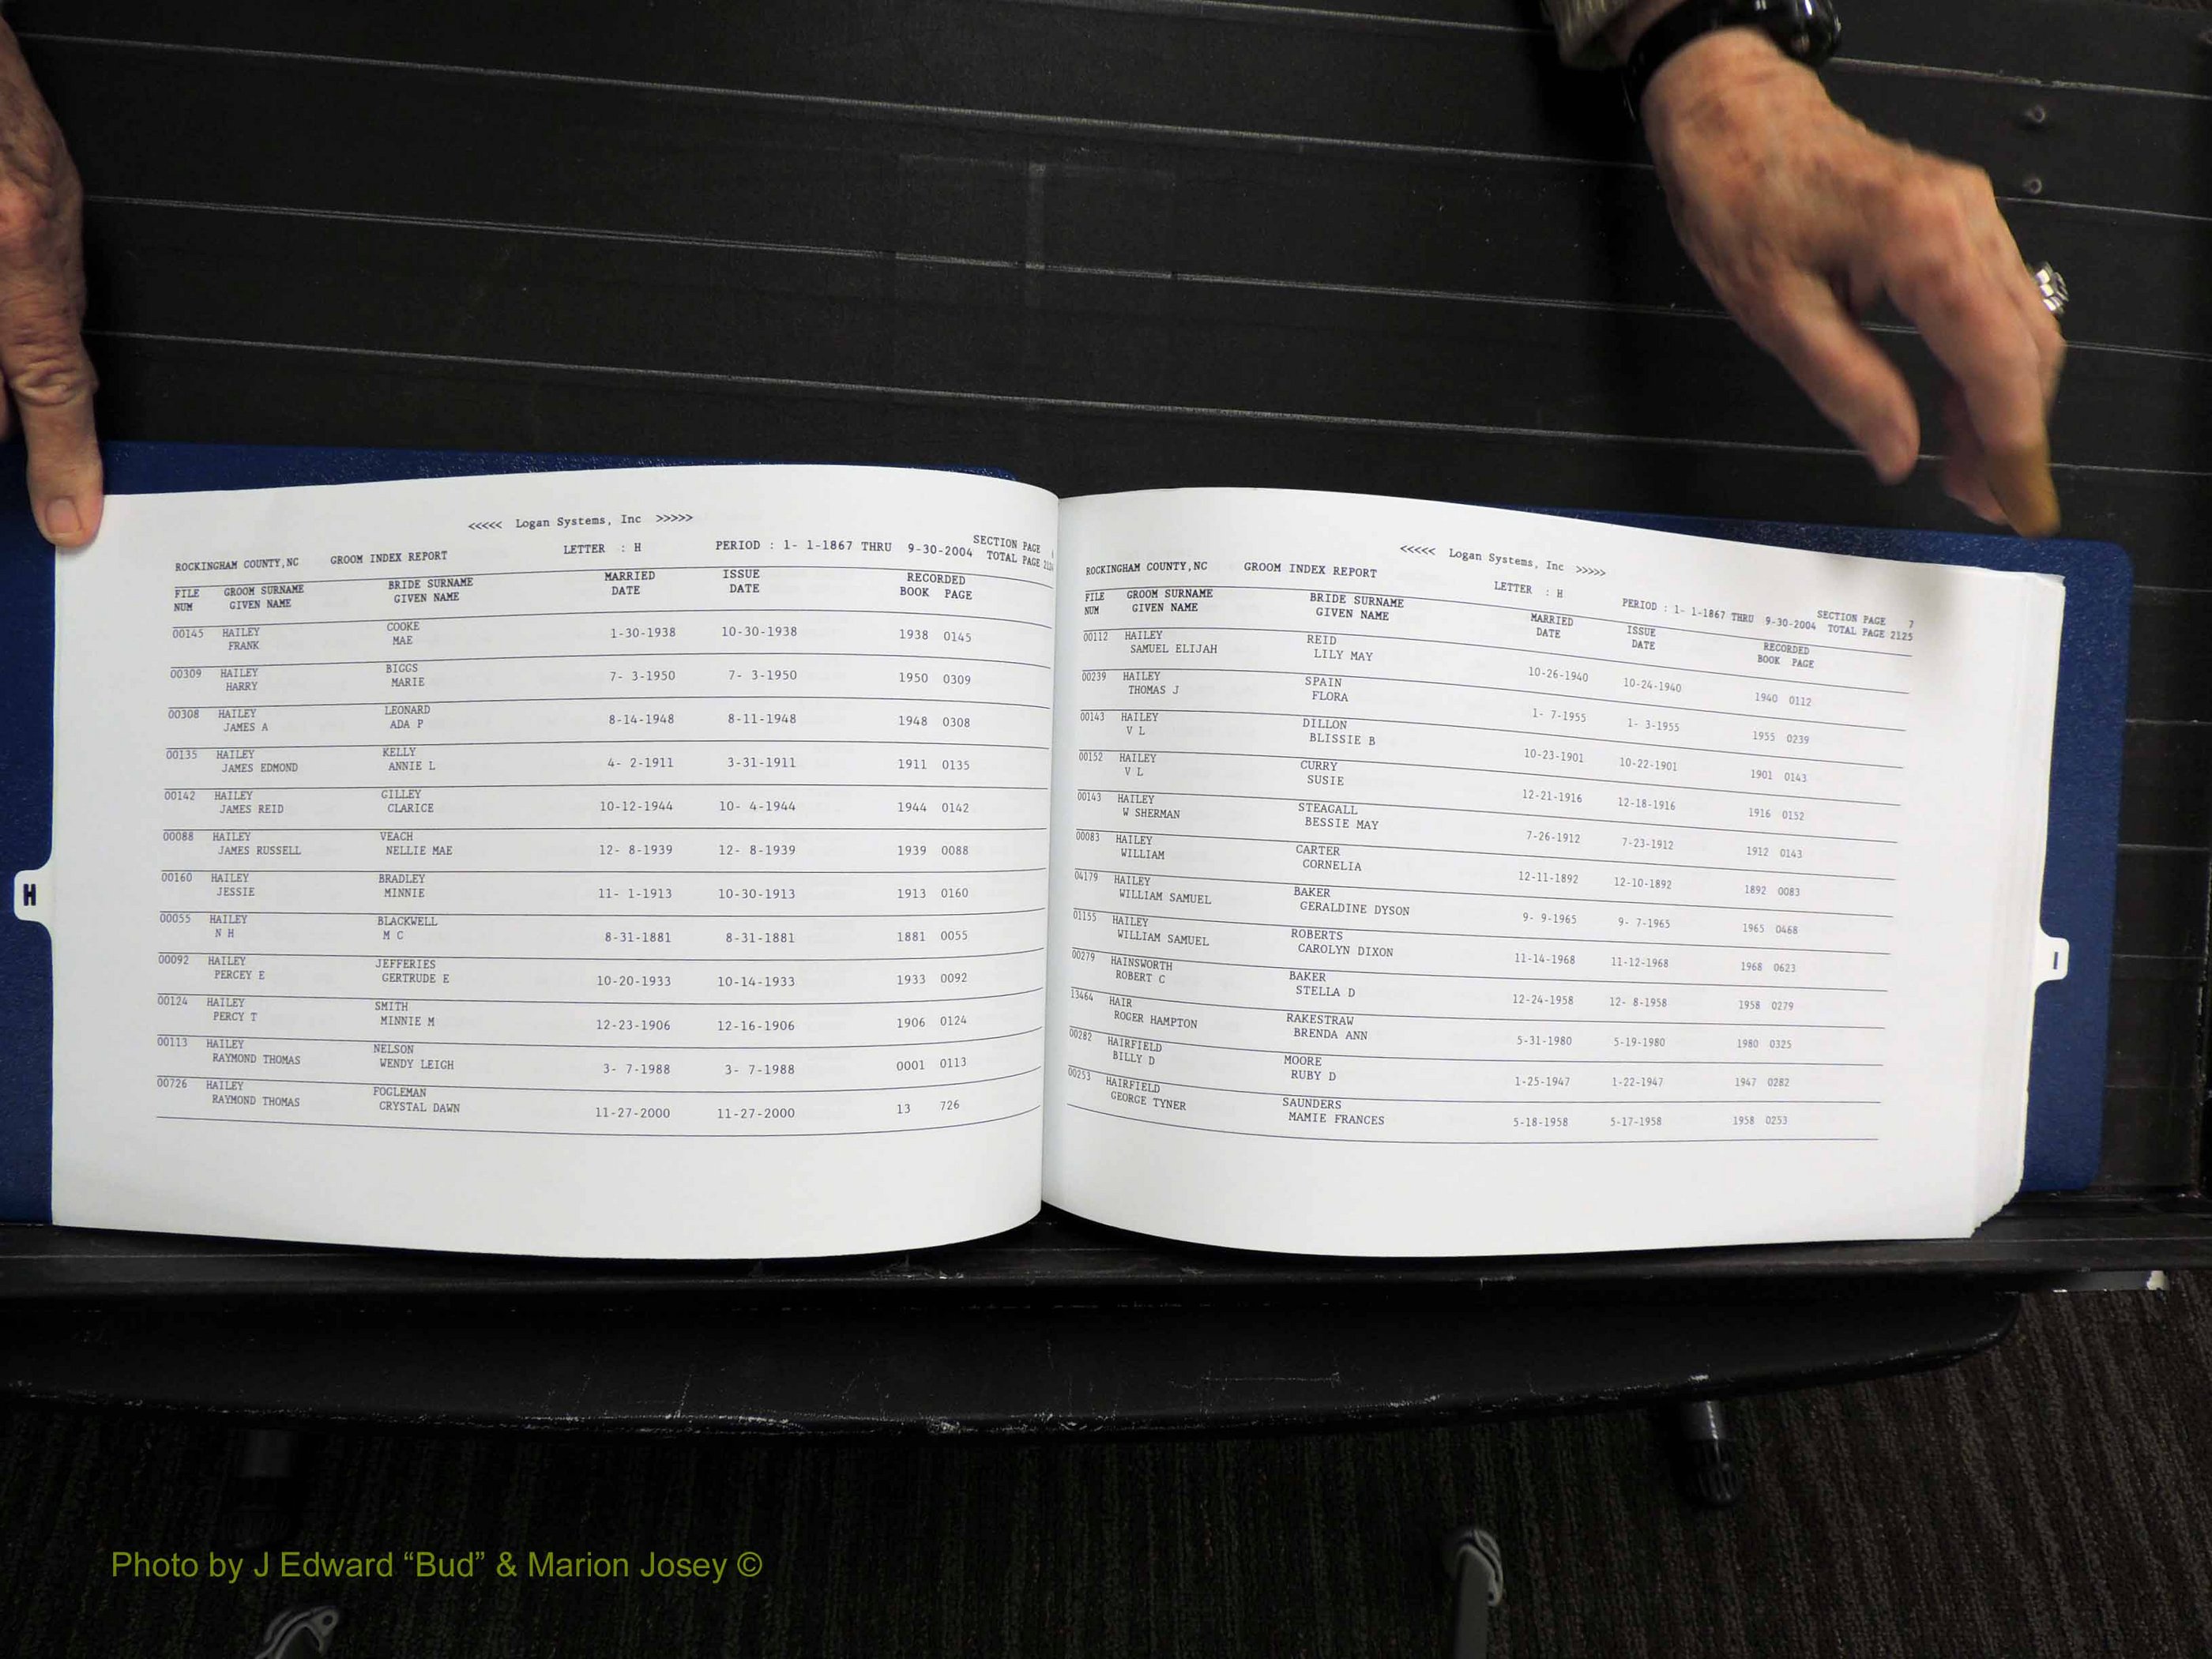 <<<<< Logan Systems, Inc >>>>>
ROCKINGHAM COUNTY,NC GROOM INDEX REPORT LETTER : H PERIOD : 1- 1-1867 THRU 9-30-2004 SECTION PAGE
TOTAL PAGE
FILE GROOM SURNAME BRIDE SURNAME MARRIED ISSUE RECORDED
NUM GIVEN NAME GIVEN NAME DATE DATE BOOK PAGE
00145 HAILEY COOKE
FRANK MAE 1-30-1938 10-30-1938 1938 0145
00309 HAILEY BIGGS
HARRY MARIE 7- 3-1950 7- 3-1950 1950 0309
00308 HAILEY LEONARD
JAMES A ADA P 8-14-1948 8-11-1948 1948 0308
00135 HAILEY KELLY
JAMES EDMOND ANNIE L 4- 2-1911 3-31-1911 1911 0135
00142 HAILEY GILLEY
JAMES REID CLARICE 10-12-1944 10- 4-1944 1944 0142
00088 HAILEY VEACH
JAMES RUSSELL NELLIE MAE 12- 8-1939 12- 8-1939 1939 0088
00160 HAILEY BRADLEY
JESSIE MINNIE 11- 1-1913 10-30-1913 1913 0160
00055 HAILEY BLACKWELL
N H M C 8-31-1881 8-31-1881 1881 0055
00092 HAILEY JEFFERIES
PERCEY E GERTRUDE E 10-20-1933 10-14-1933 1933 0092
00124 HAILEY SMITH
PERCY T MINNIE M 12-23-1906 12-16-1906 1906 0124
00113 HAILEY NELSON
RAYMOND THOMAS WENDY LEIGH 3- 7-1988 3- 7-1988 0001 0113
00726 HAILEY FOGLEMAN
RAYMOND THOMAS CRYSTAL DAWN 11-27-2000 11-27-2000 13 726
H
<<<<< Logan Systems, Inc >>>>>
ROCKINGHAM COUNTY,NC GROOM INDEX REPORT LETTER : H PERIOD : 1- 1-1867 THRU 9-30-2004 SECTION PAGE 7
TOTAL PAGE 2125
FILE GROOM SURNAME BRIDE SURNAME MARRIED ISSUE RECORDED
NUM GIVEN NAME GIVEN NAME DATE DATE BOOK PAGE
00112 HAILEY REID
SAMUEL ELIJAH LILY MAY 10-26-1940 10-24-1940 1940 0112
00239 HAILEY SPAIN
THOMAS J FLORA 1- 7-1955 1- 3-1955 1955 0239
00143 HAILEY DILLON
V L BLISSIE B 10-23-1901 10-22-1901 1901 0143
00152 HAILEY CURRY
V L SUSIE 12-21-1916 12-18-1916 1916 0152
00143 HAILEY STEAGALL
W SHERMAN BESSIE MAY 7-26-1912 7-23-1912 1912 0143
00083 HAILEY CARTER
WILLIAM CORNELIA 12-11-1892 12-10-1892 1892 0083
04179 HAILEY BAKER
WILLIAM SAMUEL GERALDINE DYSON 9- 9-1965 9- 7-1965 1965 0468
01155 HAILEY ROBERTS
WILLIAM SAMUEL CAROLYN DIXON 11-14-1968 11-12-1968 1968 0623
00279 HAINSWORTH BAKER
ROBERT C STELLA D 12-24-1958 12- 8-1958 1958 0279
13464 HAIR RAKESTRAW
ROGER HAMPTON BRENDA ANN 5-31-1980 5-19-1980 1980 0325
00282 HAIRFIELD MOORE
BILLY D RUBY D 1-25-1947 1-22-1947 1947 0282
00253 HAIRFIELD SAUNDERS
GEORGE TYNER MAMIE FRANCES 5-18-1958 5-17-1958 1958 0253
I
Photo by J Edward “Bud” & Marion Josey ©